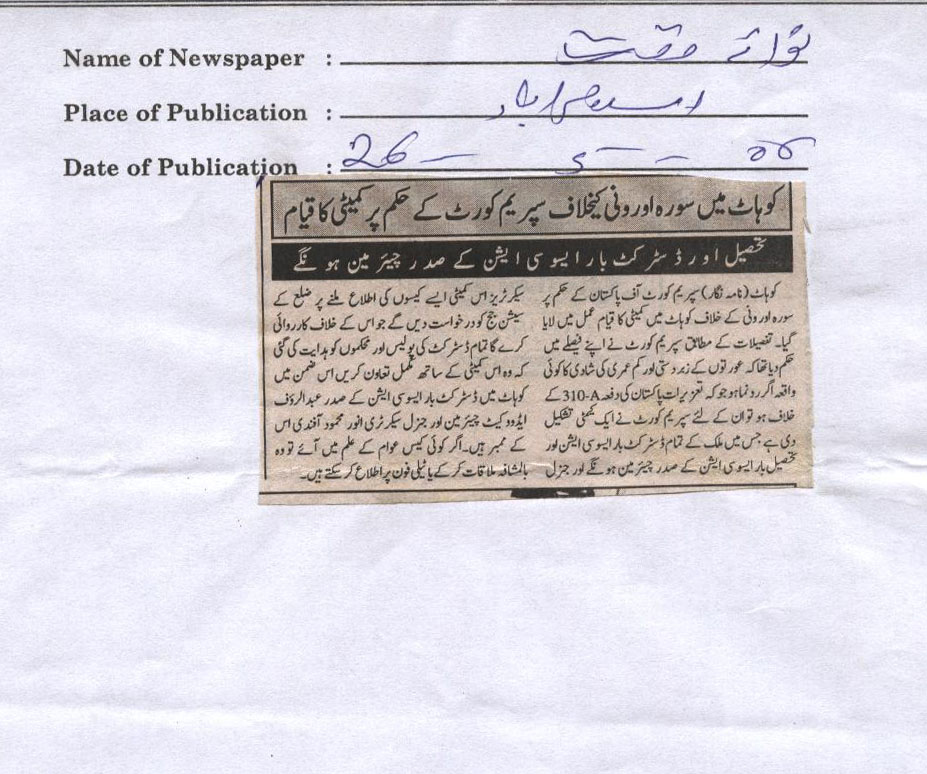 Name of Newspaper : نوائے وقت
Place of Publication : اسلام آباد
Date of Publication : 26 - 5 - 06
کوہاٹ میں سورہ اور ونی کیخلاف سپریم کورٹ کے حکم پر کمیٹی کا قیام
تحصیل اور ڈسٹرکٹ بار ایسوسی ایشن کے صدر چیئرمین ہونگے
کوہاٹ (نامہ نگار) سپریم کورٹ آف پاکستان کے حکم پر
سورہ اور ونی کے خلاف کوہاٹ میں کمیٹی کا قیام عمل میں لایا
گیا۔ تفصیلات کے مطابق سپریم کورٹ نے اپنے فیصلے میں
حکم دیا تھا کہ عورتوں کے زبردستی اور کم عمری کی شادی کا کوئی
واقعہ اگر رونما ہو جو کہ تعزیرات پاکستان کی دفعہ 310-A کے
خلاف ہو تو ان کے لئے سپریم کورٹ نے ایک کمیٹی تشکیل
دی ہے جس میں ملک کے تمام ڈسٹرکٹ بار ایسوسی ایشن اور
تحصیل بار ایسوسی ایشن کے صدر چیئرمین ہونگے اور جنرل
سیکرٹریز اس کمیٹی ایسے کیسوں کی اطلاع ملنے پر ضلع کے
سیشن جج کو درخواست دیں گے جو اس کے خلاف کارروائی
کرے گا تمام ڈسٹرکٹ کی پولیس اور محکموں کو ہدایت کی گئی
کہ وہ اس کمیٹی کے ساتھ مکمل تعاون کریں اس ضمن میں
کوہاٹ میں ڈسٹرکٹ بار ایسوسی ایشن کے صدر عبدالرؤف
ایڈووکیٹ چیئرمین اور جنرل سیکرٹری انور محمود آفندی اس
کے ممبر ہیں۔ اگر کوئی کیس عوام کے علم میں آئے تو وہ
بالمشافہ ملاقات کر کے یا ٹیلی فون پر اطلاع کر سکتے ہیں۔